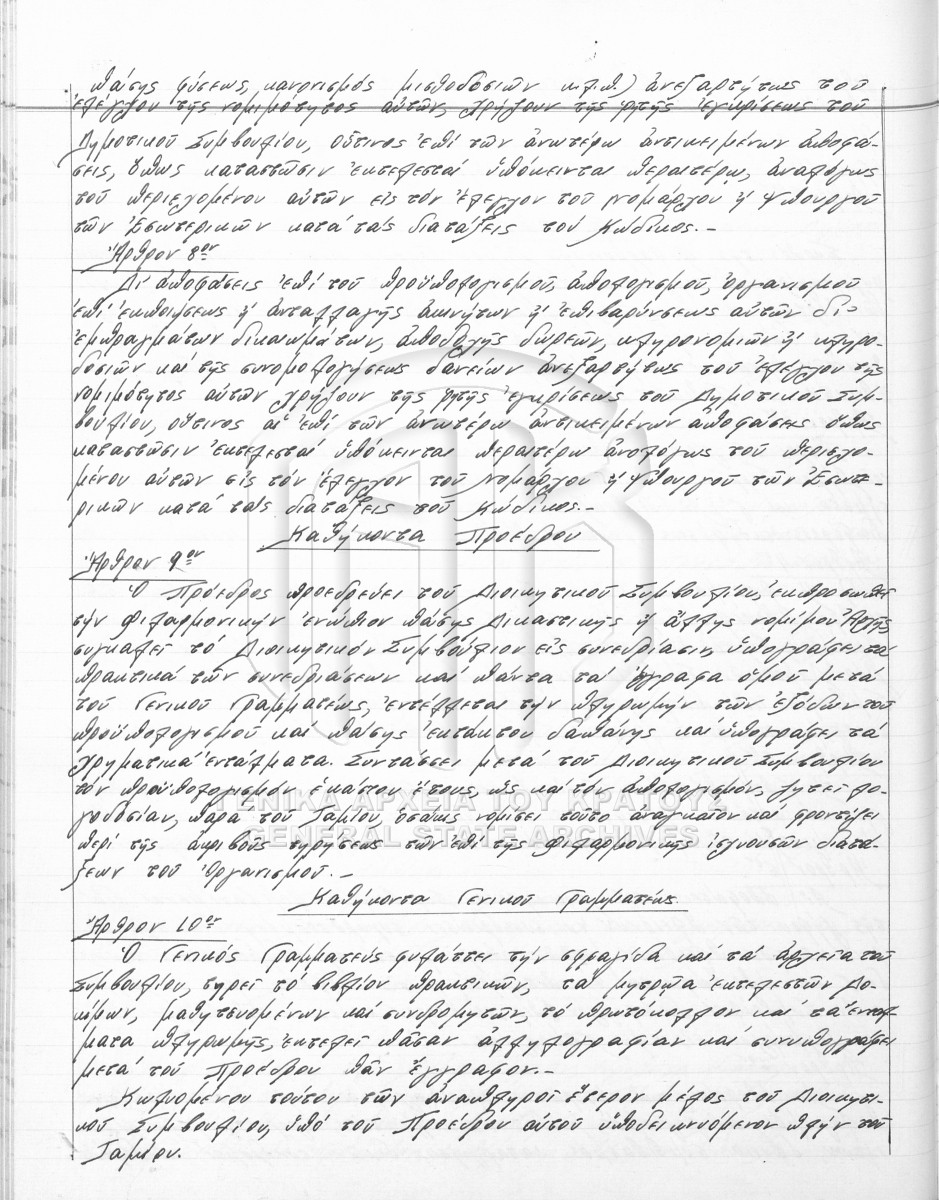 πάσης φύσεως, κανονισμός μισθοδοσιών κ.λ.π.) ἀνεξαρτήτως τοῦ
ἐλέγχου τῆς νομιμότητος αὐτῶν, χρήζουν τῆς ρητῆς ἐγκρίσεως τοῦ
Δημοτικοῦ Συμβουλίου, οὗτινος ἐπί τῶν ἀνωτέρω ἀντικειμένων ἀποφά-
σεις, ὅπως καταστῶσιν ἐκτελεσταί ὑπόκεινται περαιτέρω, ἀναλόγως
τοῦ περιεχομένου αὐτῶν εἰς τόν ἔλεγχον τοῦ Νομάρχου ἤ Ὑπουργοῦ
τῶν Ἐσωτερικῶν κατά τάς διατάξεις τοῦ Κώδικος.-
Ἄρθρον 8ον
Αἱ ἀποφάσεις ἐπί τοῦ προϋπολογισμοῦ, ἀπολογισμοῦ, ὀργανισμοῦ
ἐπί ἐκποιήσεως ἤ ἀνταλλαγῆς ἀκινήτων ἤ ἐπιβαρύνσεως αὐτῶν δι'
ἐμπραγμάτων δικαιωμάτων, ἀποδοχῆς δωρεῶν, κληρονομιῶν ἤ κληρο-
δοσιῶν καί τῆς συνομολογήσεως δανείων ἀνεξαρτήτως τοῦ ἐλέγχου τῆς
νομιμότητος αὐτῶν χρήζουν τῆς ρητῆς ἐγκρίσεως τοῦ Δημοτικοῦ Συμ-
βουλίου, οὗτινος αἱ ἐπί τῶν ἀνωτέρω ἀντικειμένων ἀποφάσεις ὅπως
καταστῶσιν ἐκτελεσταί ὑπόκεινται περαιτέρω ἀναλόγως τοῦ περιεχο-
μένου αὐτῶν εἰς τόν ἔλεγχον τοῦ Νομάρχου ἤ Ὑπουργοῦ τῶν Ἐσωτε-
ρικῶν κατά τάς διατάξεις τοῦ Κώδικος.-
Καθήκοντα Προέδρου
Ἄρθρον 9ον
Ὁ Πρόεδρος προεδρεύει τοῦ Διοικητικοῦ Συμβουλίου, ἐκπροσωπεῖ
τήν Φιλαρμονικήν ἐνώπιον πάσης Δικαστικῆς ἤ ἄλλης νομίμου Ἀρχῆς
συγκαλεῖ τό Διοικητικόν Συμβούλιον εἰς συνεδρίασιν, ὑπογράφει τα
πρακτικά τῶν συνεδριάσεων καί πάντα τά ἔγγραφα ὁμοῦ μετά
τοῦ Γενικοῦ Γραμματέως, ἐντέλλεται τήν πληρωμήν τῶν ἐξόδων τοῦ
προϋπολογισμοῦ καί πάσης ἐκτάκτου δαπάνης καί ὑπογράφει τά
χρηματικά ἐντάλματα. Συντάσσει μετά τοῦ Διοικητικοῦ Συμβουλίου
τόν προϋπολογισμόν ἑκάστου ἔτους, ὡς καί τόν ἀπολογισμόν, ζητεῖ λο-
γοδοσίαν, παρά τοῦ Ταμίου, ὁσάκις νομίσει τοῦτο ἀναγκαῖον καί φροντίζει
περί τῆς ἀκριβοῦς τηρήσεως τῶν ἐπί τῆς Φιλαρμονικῆς ἰσχυουσῶν διατά-
ξεων τοῦ Ὀργανισμοῦ.-
ΓΕΝΙΚΑ ΑΡΧΕΙΑ ΤΟΥ ΚΡΑΤΟΥΣ
GENERAL STATE ARCHIVES
Καθήκοντα Γενικοῦ Γραμματέως.
Ἄρθρον 10ον
Ὁ Γενικός Γραμματεύς φυλάττει τήν σφραγίδα καί τά ἀρχεῖα τοῦ
Συμβουλίου, τηρεῖ τό βιβλίον πρακτικῶν, τά μητρῶα ἐκτελεστῶν Δο-
κίμων, μαθητευομένων καί συνδρομητῶν, τό πρωτόκολλον καί τά ἐντάλ-
ματα πληρωμῆς, ἐκτελεῖ πᾶσαν ἀλληλογραφίαν καί συνυπογράφει
μετά τοῦ Προέδρου πᾶν ἔγγραφον.-
Κωλυομένου τούτου τῶν ἀναπληροῖ ἕτερον μέλος τοῦ Διοικητι-
κοῦ Συμβουλίου, ὑπό τοῦ Προέδρου αὐτοῦ ὑποδεικνυόμενον πλήν τοῦ
Ταμίου.